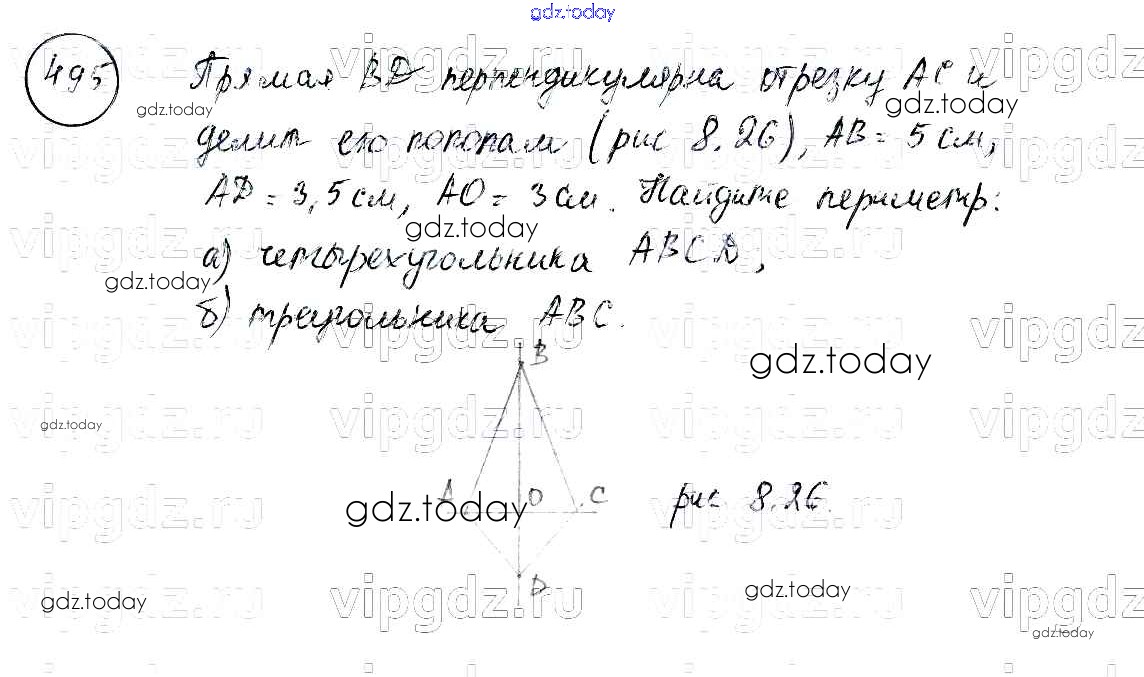 gdz.today
495 Прямая BD перпендикулярна отрезку AC и
gdz.today gdz.today
делит его пополам (рис 8.26), AB = 5 см,
AD = 3,5 см, AO = 3 см. Найдите периметр:
gdz.today
а) четырехугольника ABCD,
gdz.today
б) треугольника ABC.
vipgdz.ru vipgdz.ru vipgdz.ru vipgdz
B
gdz.today
vipgdz.ru vipgdz.ru vipgdz.ru vipgdz
gdz.today
A O C рис 8.26.
gdz.today
vipgdz.ru vipgdz.ru vipgdz.ru vipgdz
D
gdz.today gdz.today
vipgdz.ru vipgdz.ru vipgdz.ru vipgdz
gdz.today